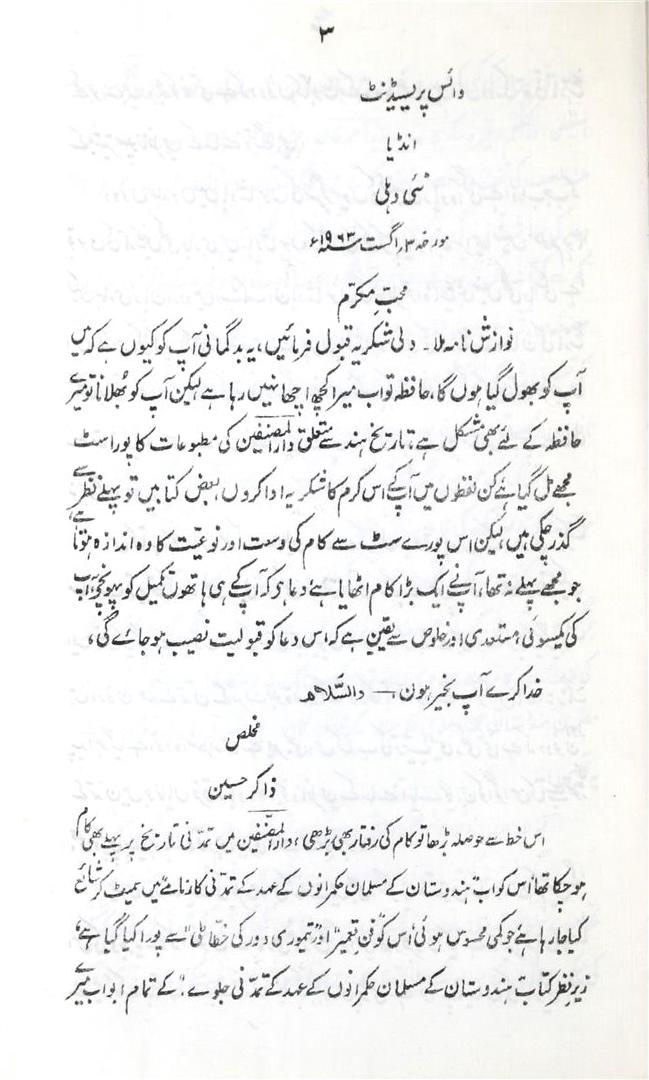 ۳
وائس پریسیڈینٹ
انڈیا
نئی دہلی
مورخہ ۳؍اگست ۱۹۶۳ء
محبِّ مکرّم
نوازش نامہ ملا۔ دلی شکریہ قبول فرمائیں، یہ بدگمانی آپ کو کیوں ہے کہ میں
آپ کو بھول گیا ہوں گا، حافظہ تو اب میرا کچھ اچھا نہیں رہا ہے لیکن آپ کو بھلانا تو میرے
حافظہ کے لئے بھی مشکل ہے، تاریخ ہند سے متعلق دارالمصنفین کی مطبوعات کا پورا سٹ
مجھے مل گیا ہے کن لفظوں میں آپ کے اس کرم کا شکریہ ادا کروں، بعض کتابیں تو پہلے نظر سے
گذر چکی ہیں، لیکن اس پورے سٹ سے کام کی وسعت اور نوعیّت کا وہ اندازہ ہوتا ہے،
جو مجھے پہلے نہ تھا، آپنے ایک بڑا کام اٹھایا ہے، دعا ہے کہ آپ کے ہی ہاتھوں تکمیل کو پہونچے، آپ
کی یکسوئی، مستعدی اور خلوص سے یقین ہے کہ اس دعا کو قبولیت نصیب ہو جائے گی،
خدا کرے آپ بخیر ہون — والسّلام
مخلص
ذاکر حسین
اس خط سے حوصلہ بڑھا تو کام کی رفتار بھی بڑھی، دارالمصنفین میں تمدّنی تاریخ پر پہلے بھی کام
ہو چکا تھا، اس کو اب ہندوستان کے مسلمان حکمرانوں کے عہد کے تمدّنی کارنامے” میں سمیٹ کر شائع
کیا جا رہا ہے، جو کمی محسوس ہوئی، اس کو “فنِ تعمیر” اور “تیموری دور کی خطّاطی” سے پورا کیا گیا ہے،
زیرِ نظر کتاب ہندوستان کے مسلمان حکمرانوں کے عہد کے تمدّنی جلوے”، کے تمام ابواب میرے